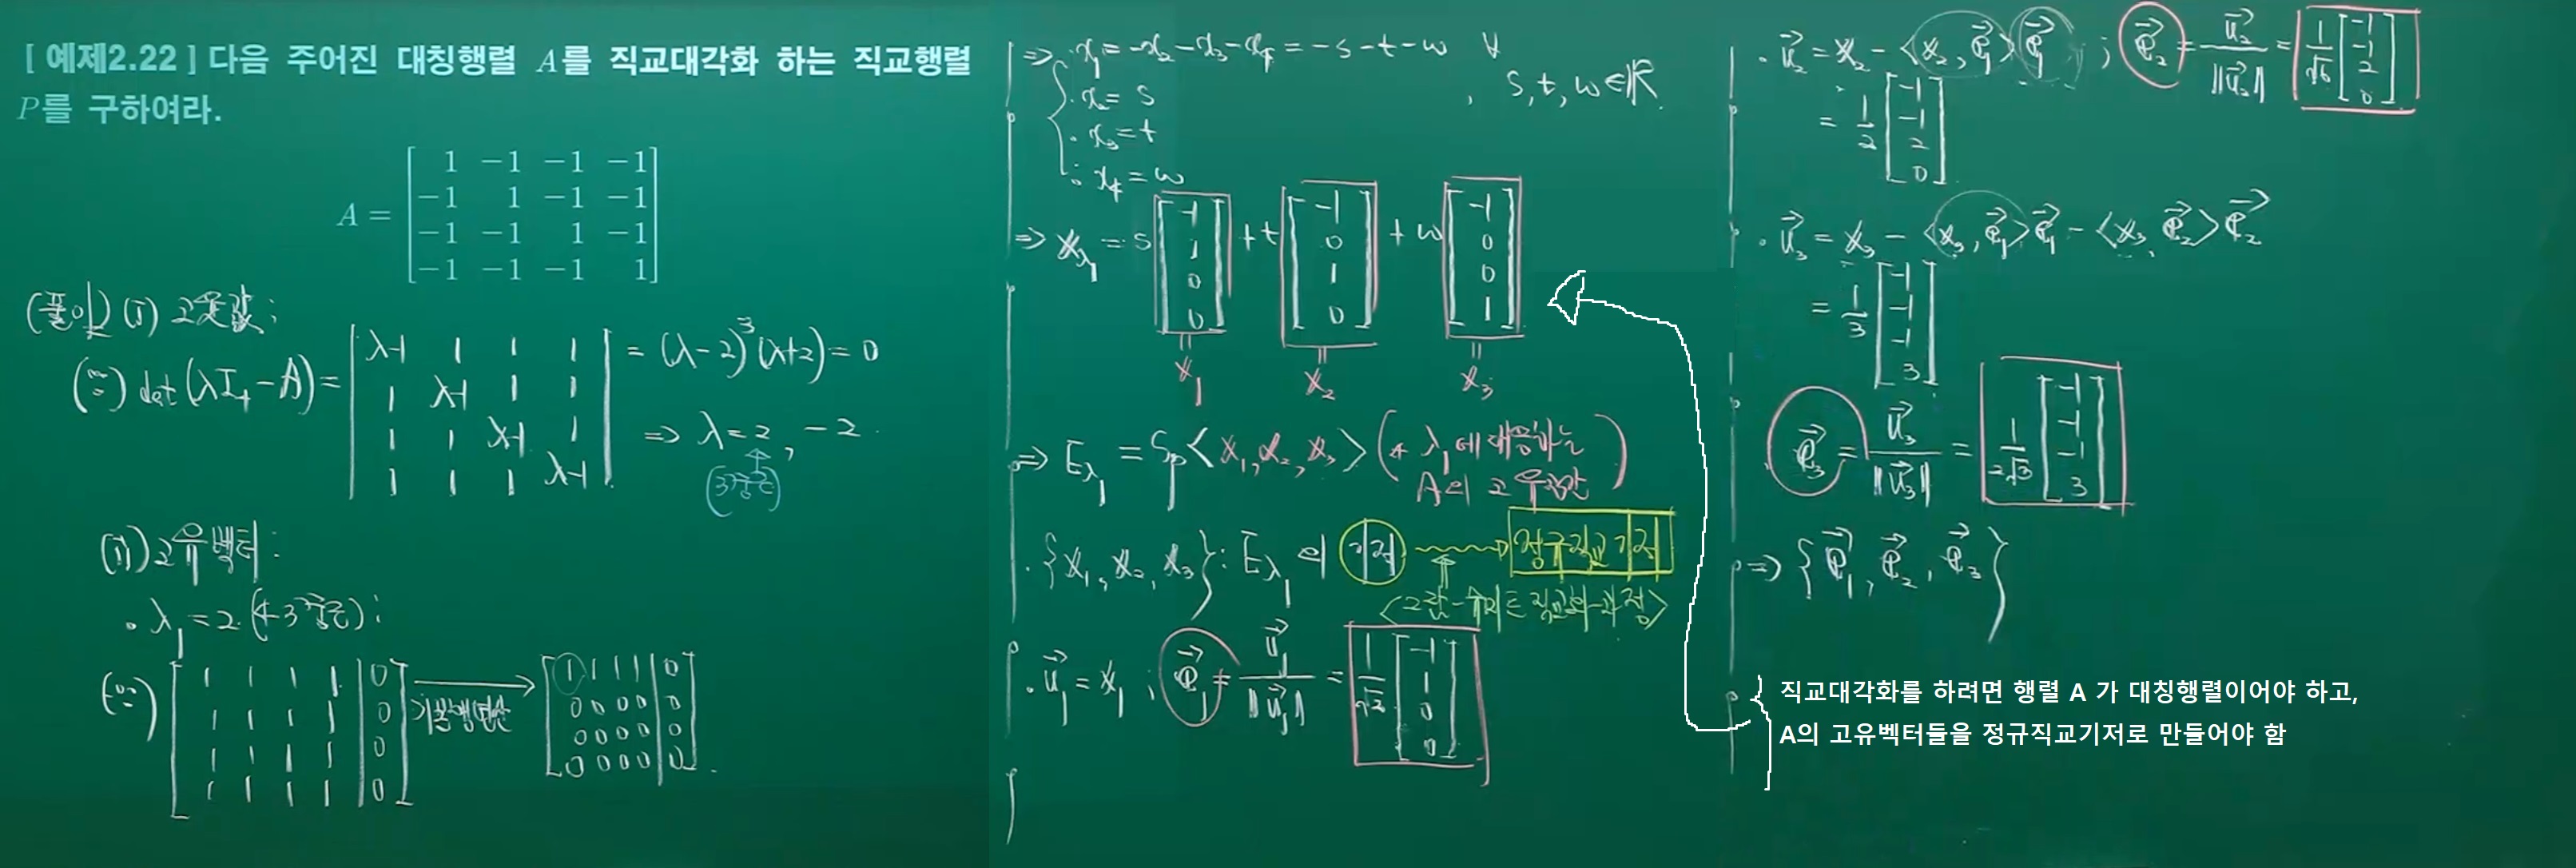 [ 예제2.22 ] 다음 주어진 대칭행렬 A를 직교대각화 하는 직교행렬
P를 구하여라.
A = [ 1 −1 −1 −1
−1 1 −1 −1
−1 −1 1 −1
−1 −1 −1 1 ]
(풀이) (i) 고윳값 ;
(∵) det(λI₄ − A) = | λ-1 1 1 1 | = (λ−2)³(λ+2) = 0
| 1 λ-1 1 1 |
| 1 1 λ-1 1 | ⇒ λ = 2, −2.
| 1 1 1 λ-1 | (3중근)
(ii) 고유벡터 :
· λ₁ = 2. (← 3중근) ;
(∵) [ 1 1 1 1 | 0 ] → [ 1 1 1 1 | 0 ]
[ 1 1 1 1 | 0 ] 기본행연산 [ 0 0 0 0 | 0 ]
[ 1 1 1 1 | 0 ] [ 0 0 0 0 | 0 ]
[ 1 1 1 1 | 0 ] [ 0 0 0 0 | 0 ].
⇒ · x₁ = -x₂ - x₃ - x₄ = -s - t - w ∀
· x₂ = s , s, t, w ∈ ℝ.
· x₃ = t
· x₄ = w
⇒ x_λ₁ = s [ -1 1 0 0 ] + t [ -1 0 1 0 ] + w [ -1 0 0 1 ]
= x₁ = x₂ = x₃
⇒ E_λ₁ = Sp< x₁, x₂, x₃ > (← λ₁에 대응하는
A의 고유공간)
· {x₁, x₂, x₃} : E_λ₁ 의 기저 → 정규직교기저
<그람-슈미트 직교화 과정>
· u₁ = x₁ ; e₁ = u₁/‖u₁‖ = 1/√2 [ -1 1 0 0 ]
· u₂ = x₂ − <x₂, e₁> e₁ ; e₂ = u₂/‖u₂‖ = 1/√6 [ -1 -1 2 0 ]
= 1/2 [ -1 -1 2 0 ]
· u₃ = x₃ − <x₃, e₁> e₁ − <x₃, e₂> e₂
= 1/3 [ -1 -1 -1 3 ]
e₃ = u₃/‖u₃‖ = 1/2√3 [ -1 -1 -1 3 ]
⇒ { e₁, e₂, e₃ }
직교대각화를 하려면 행렬 A 가 대칭행렬이어야 하고,
A의 고유벡터들을 정규직교기저로 만들어야 함